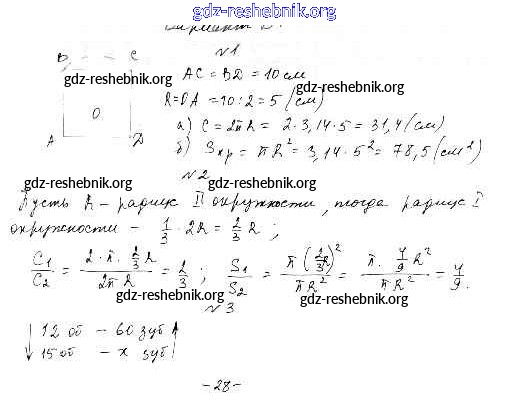 gdz-reshebnik.org
Вариант 2.
№1
B C
AC = BD = 10 см
gdz-reshebnik.org
R = OA = 10 : 2 = 5 (см) gdz-reshebnik.org
O
а) C = 2πR = 2·3,14·5 = 31,4 (см)
A D
б) Sкр = πR² = 3,14·5² = 78,5 (см²)
gdz-reshebnik.org №2 gdz-reshebnik.org
Пусть R – радиус II окружности, тогда радиус I
окружности – 1/3 · 2R = 2/3 R ;
C₁/C₂ = (2·π·2/3 R)/(2πR) = 2/3 ; S₁/S₂ = π(2/3 R)²/(πR²) = (π·4/9 R²)/(πR²) = 4/9.
gdz-reshebnik.org №3 gdz-reshebnik.org
↓ 12 об – 60 зуб ↑
↓ 15 об – x зуб
– 28 –